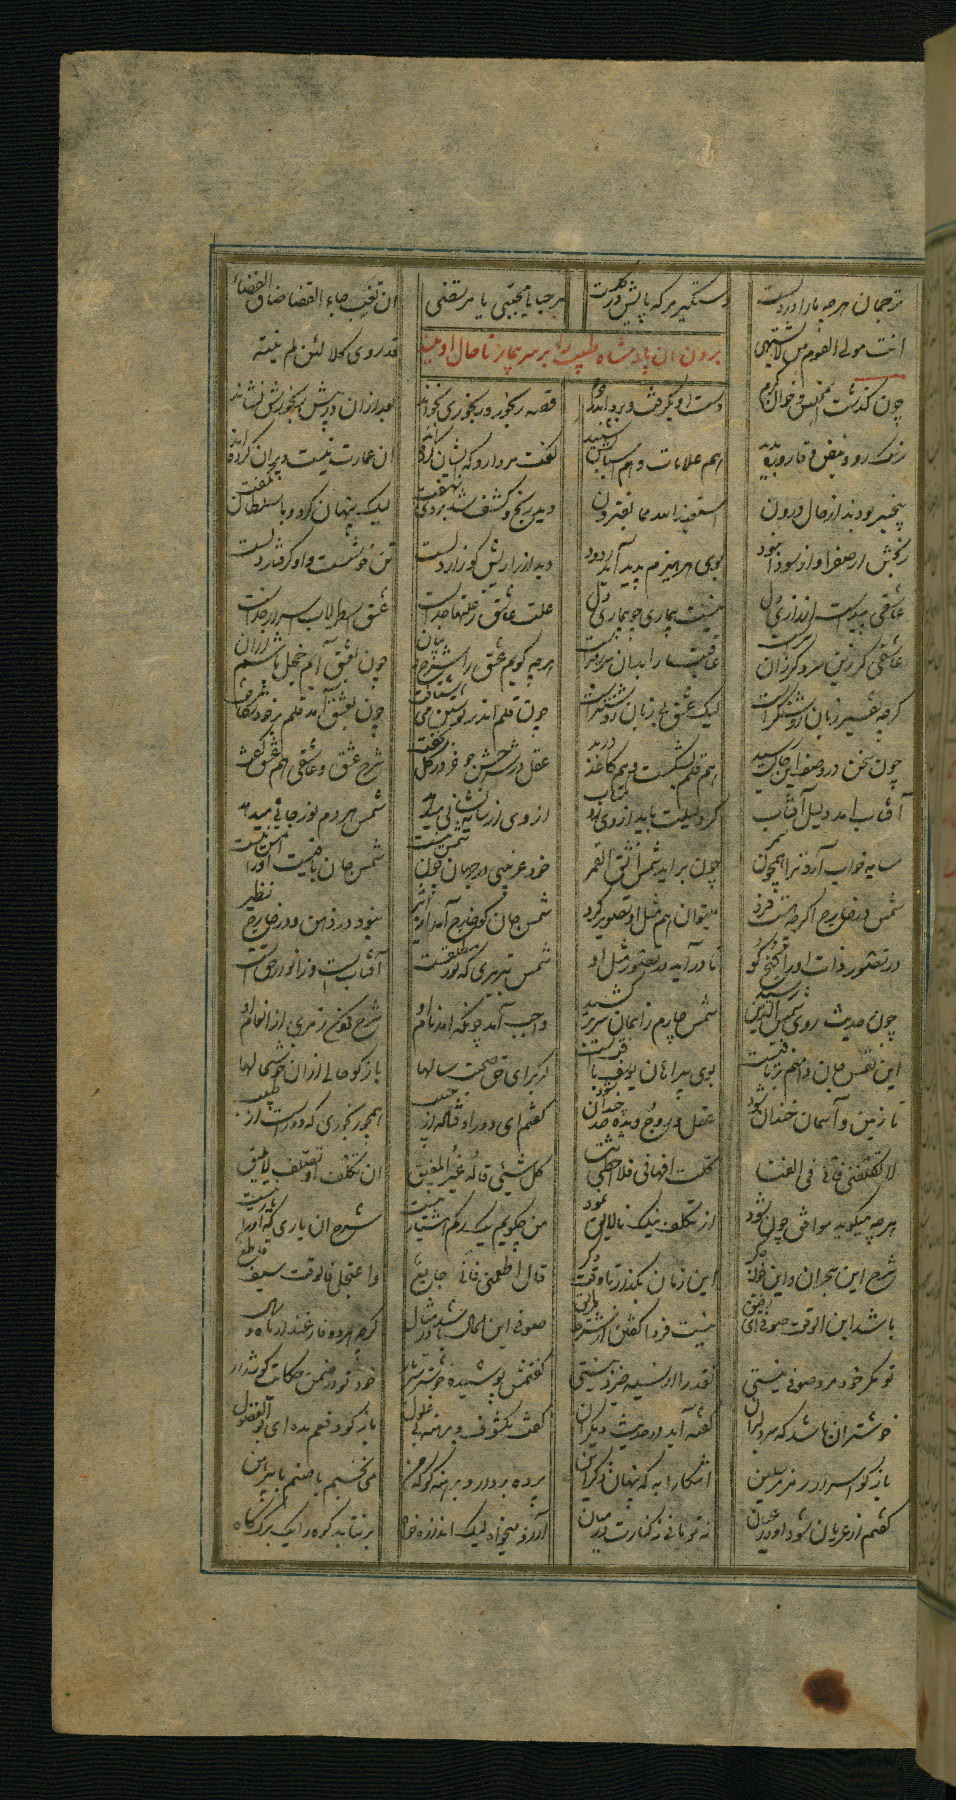 ترجمان هرچه ما را در دلست دستگیر هر که پایش در گلست مرحبا یا مجتبی یا مرتضی ان تغب جاء القضا ضاق الفضا
انت مولی القوم من لا یشتهی قد ردی کلا لئن لم ینته
بردن ان پادشاه طبیب را بر سر بیمار تا حال او بیند
چون گذشت آن مجلس و خوان کرم دست او بگرفت و برد اندر حرم قصه رنجور و رنجوری بخواند بعد ازان در پیش رنجورش نشاند
رنگ رو و نبض و قاروره بدید هم علامات و هم اسبابش شنید گفت هر دارو که ایشان کرده‌اند ان عمارت نیست ویران کرده‌اند
بیخبر بودند از حال درون استعیذ الله مما یفترون دید رنج و کشف شد بر وی نهفت لیک پنهان کرد و با سلطان نگفت
رنجش از صفرا و از سودا نبود بوی هر هیزم پدید آید ز دود دید از زاریش کو زار دلست تن خوشست و او گرفتار دلست
عاشقی پیداست از زاری دل نیست بیماری چو بیماری دل علت عاشق ز علتها جداست عشق اسطرلاب اسرار خداست
عاشقی گر زین سر و گر زان سرست عاقبت ما را بدان سر رهبرست هرچه گویم عشق را شرح و بیان چون بعشق آیم خجل باشم ازان
گرچه تفسیر زبان روشنگرست لیک عشق بی زبان روشنترست چون قلم اندر نوشتن می شتافت چون بعشق آمد قلم بر خود شکافت
چون سخن در وصف این حالت رسید هم قلم بشکست و هم کاغذ درید عقل در شرحش چو خر در گل بخفت شرح عشق و عاشقی هم عشق گفت
آفتاب آمد دلیل آفتاب گر دلیلت باید از وی رو متاب از وی ار سایه نشانی میدهد شمس هر دم نور جانی میدهد
سایه خواب آرد ترا همچون سمر چون براید شمس انشق القمر خود غریبی در جهان چون شمس نیست شمس جان باقیست او را امس نیست
شمس در خارج اگرچه هست فرد میتوان هم مثل او تصویر کرد شمس جان کو خارج آمد از اثیر نبود در ذهن و در خارج نظیر
در تصور ذات او را گنج کو تا در آید در تصور مثل او شمس تبریزی که نور مطلقست آفتابست و ز انوار حقست
چون حدیث روی شمس الدین رسید شمس چارم ز آسمان سر درکشید واجب آمد چونکه آمد نام او شرح کردن رمزی از انعام او
این نفس جان دامنم برتافتست بوی پیراهان یوسف یافتست از برای حق صحبت سالها بازگو حالی ازان خوش حالها
تا زمین و آسمان خندان شود عقل و روح و دیده صد چندان شود گفتم ای دور اوفتاده از حبیب همچو رنجوری که دورست از طبیب
لا تکلفنی فانی فی الفنا کلت افهامی فلا احصی ثنا کل شیئ قاله غیر المفیق ان تکلف او تصلف لا یلیق
هرچه میگوید موافق چون نبود از تکلف نیک نالایق نمود من چگویم یک رگم هشیار نیست شرح ان یاری که او را یار نیست
شرح این هجران و این خون جگر این زمان بگذار تا وقت دگر قال اطعمنی فانی جایع واعتجل فالوقت سیف قاطع
باشد ابن الوقت صوفی ای رفیق نیست فردا گفتن از شرط طریق صوفی ابن الحال باشد در مثال
تو مگر خود مرد صوفی نیستی نقد را از نسیه خیزد نیستی گفتمش پوشیده خوشتر سر یار خود تو در ضمن حکایت گوش دار
خوشتر ان باشد که سر دلبران گفته آید در حدیث دیگران گفت مکشوف و برهنه بی غلول بازگو دفعم مده ای بوالفضول
بازگو اسرار و رمز مرسلین آشکارا به که پنهان ذکر دین پرده بردار و برهنه گو که من می نخسبم با صنم با پیرهن
گفتم ار عریان شود او در عیان نه تو مانی نه کنارت نه میان آرزو میخواه لیک اندازه خواه برنتابد کوه را یک برگ کاه